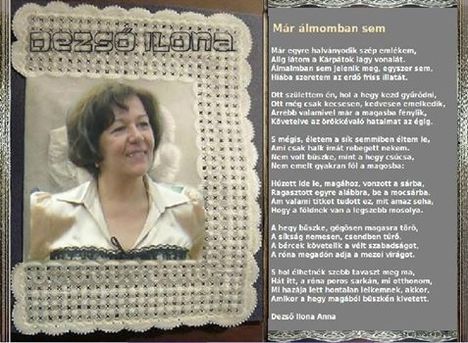 Dezső Ilona
Már álmomban sem
Már egyre halványodik szép emlékem,
Alig látom a Kárpátok lágy vonalát.
Álmaimban sem jelenik meg, egyszer sem,
Hiába szeretem az erdő friss illatát.
Ott születtem én, hol a hegy kezd gyűrődni,
Ott még csak kecsesen, kedvesen emelkedik,
Arrébb valamivel már a magasba fenylik,
Követelve az örökkévaló hatalmat az égig.
S mégis, életem a sík semmiben éltem le,
Ami csak halk imát rebegett nekem.
Nem volt büszke, mint a hegy csúcsa,
Nem emelt gyakran föl a magosba:
Húzott ide le, magához, vonzott a sárba,
Ragasztott egyre alábbra, be a mocsárba.
Ám valami titkot tudott ez, mit amaz soha,
Hogy a földnek van a legszebb mosolya.
A hegy büszke, gőgösen magasra törő,
A síkság nemesen, csendben tűrő.
A bércek követelik a vélt szabadságot,
A róna megadón adja a mezei virágot.
S hol élhetnék szebb tavaszt meg ma,
Hát itt, a róna poros sarkán, mi otthonom,
Mi hazája lett hontalan lelkemnek, akkor,
Amikor a hegy magából büszkén kivetett.
Dezső Ilona Anna